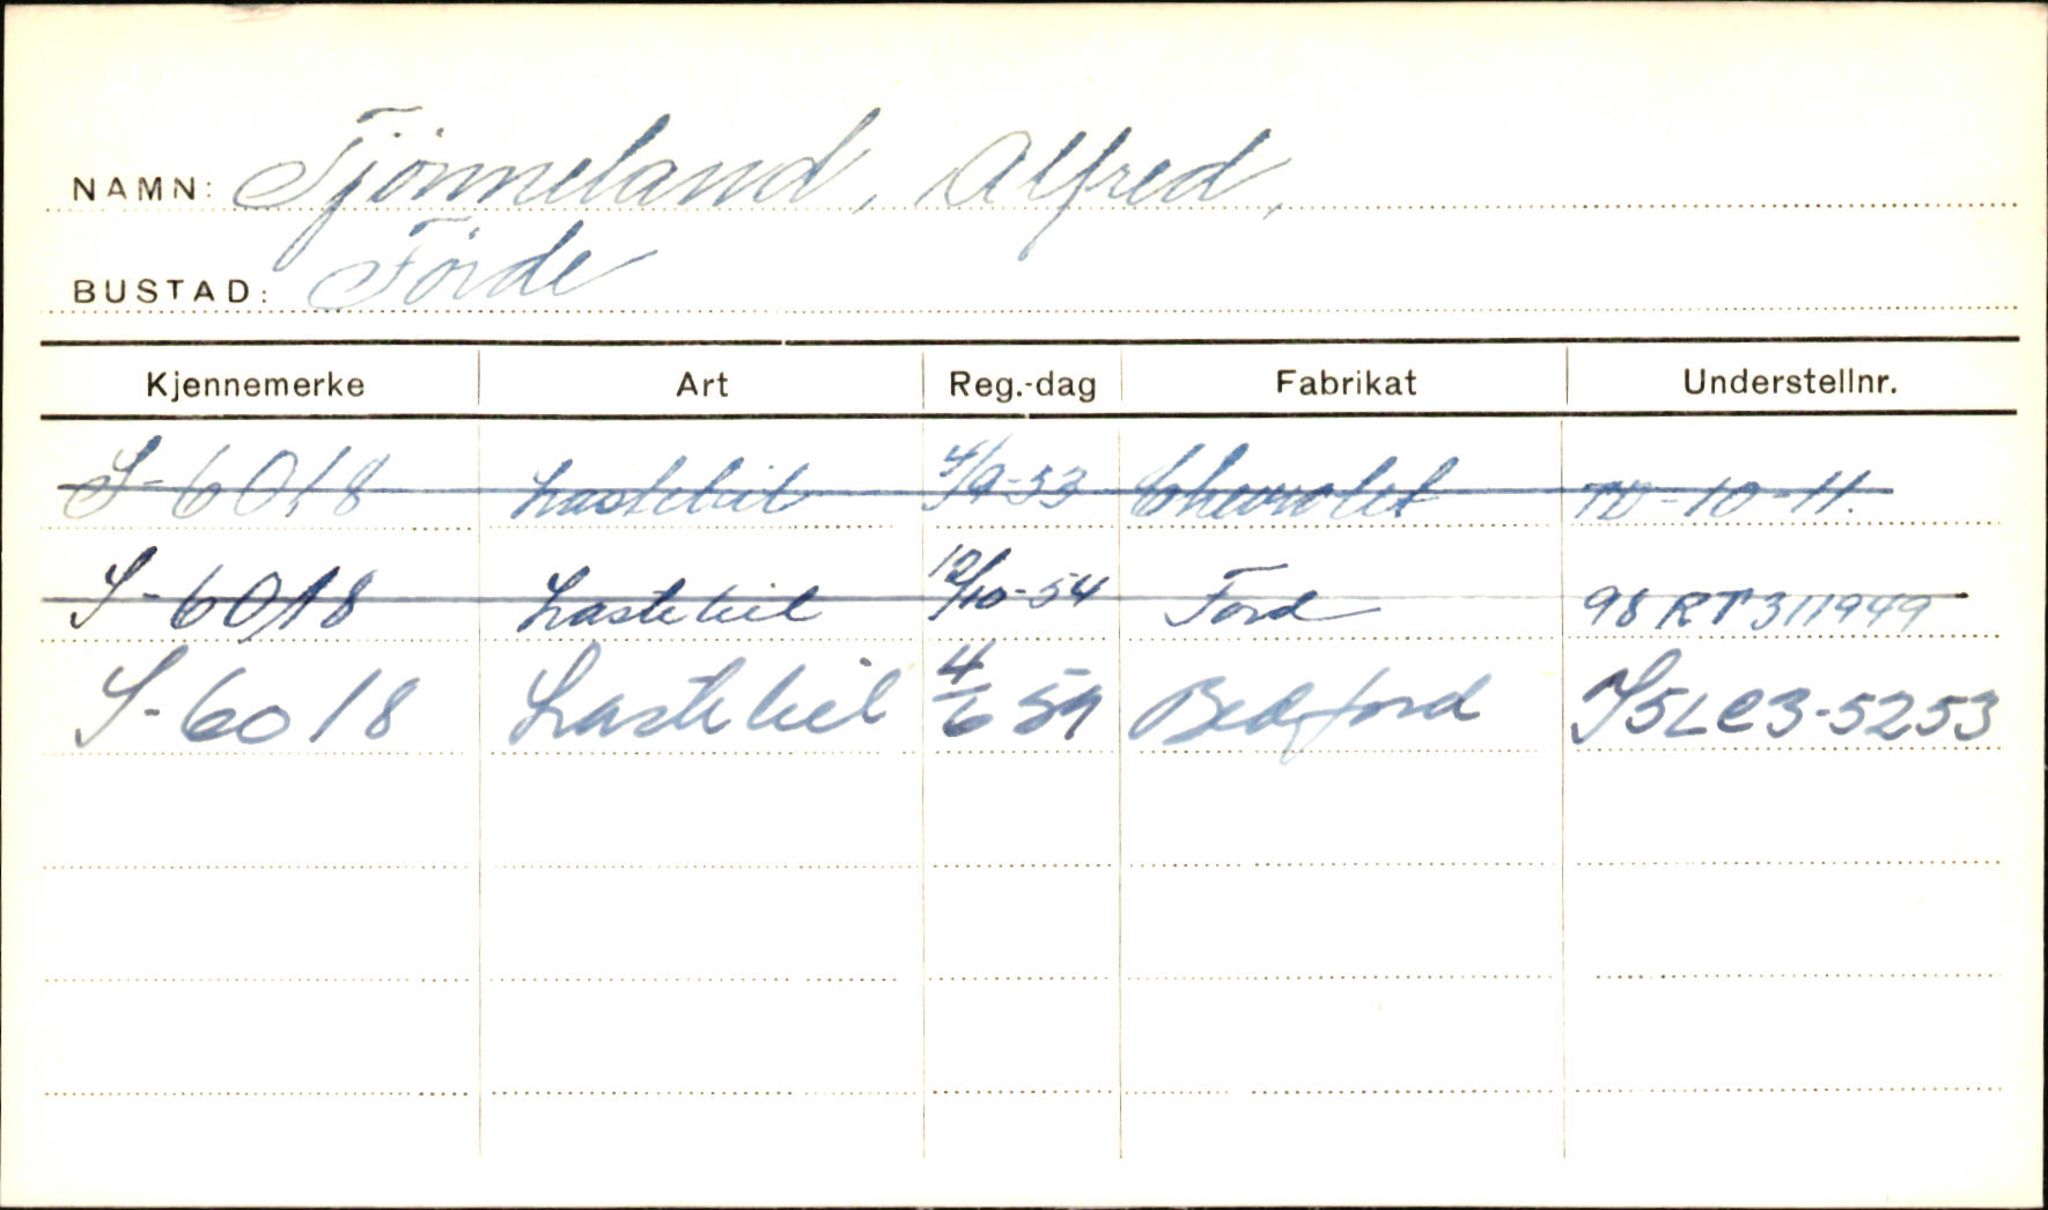 NAMN: Tjönneland, Alfred,
BUSTAD: Förde
Kjennemerke Art Reg.-dag Fabrikat Understellnr.
S-6018 Lastebil 4/9-53 Chevrolet TD-10-11.
S-6018 Lastebil 12/10-54 Ford 98 RT 311949
S-6018 Lastebil 4/6 59 Bedford J5LC3-5253